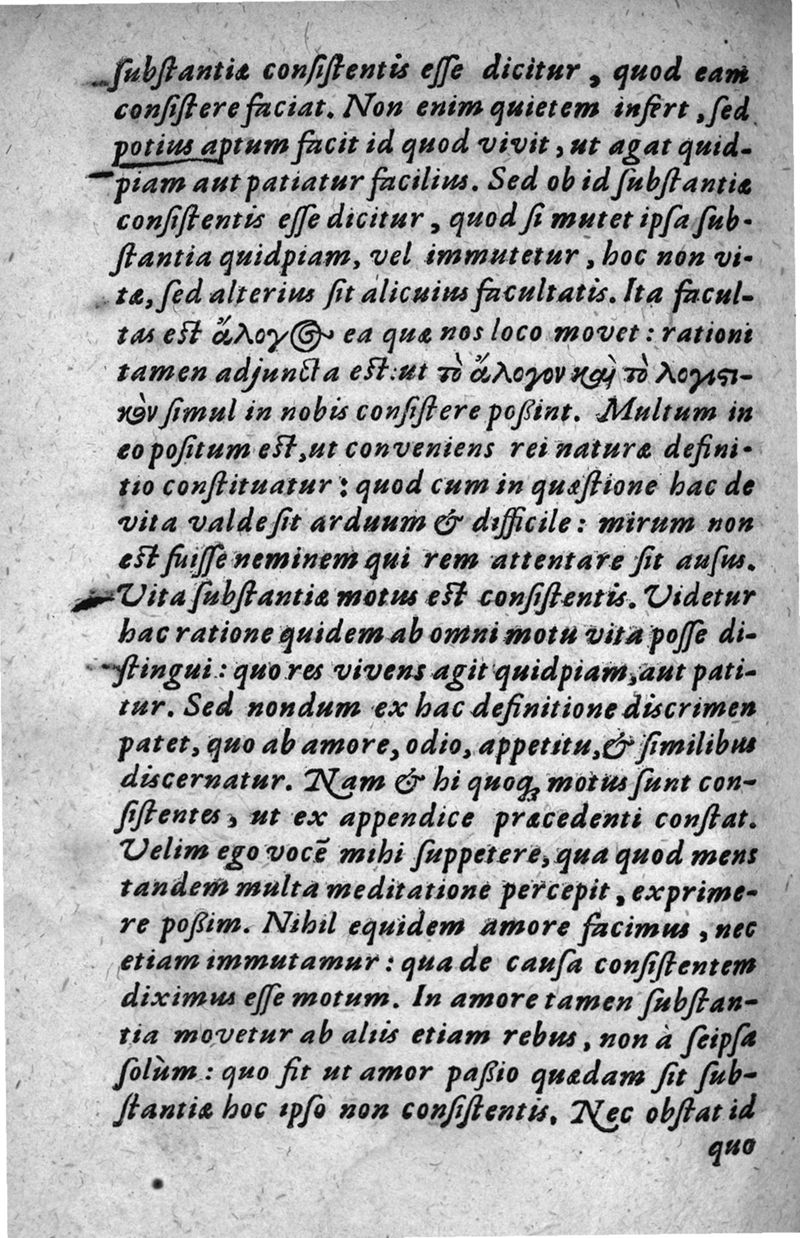 ſubſtantiæ conſiſtentis eſſe dicitur, quod eam
conſiſtere faciat. Non enim quietem infert, ſed
potius aptum facit id quod vivit, ut agat quid-
piam aut patiatur facilius. Sed ob id ſubſtantiæ
conſiſtentis eſſe dicitur, quod ſi mutet ipſa ſub-
ſtantia quidpiam, vel immutetur, hoc non vi-
tæ, ſed alterius ſit alicuius facultatis. Ita facul-
tas eſt ἄλογος ea quæ nos loco movet: rationi
tamen adjuncta eſt: ut τὸ ἄλογον καὶ τὸ λογιστι-
κὸν ſimul in nobis conſiſtere poßint. Multum in
eo poſitum eſt, ut conveniens rei naturæ defini-
tio conſtituatur: quod cum in quæſtione hac de
vita valde ſit arduum & difficile: mirum non
eſt fuiſſe neminem qui rem attentare ſit auſus.
Vita ſubſtantiæ motus eſt conſiſtentis. Videtur
hac ratione quidem ab omni motu vita poſſe di-
ſtingui: quo res vivens agit quidpiam, aut pati-
tur. Sed nondum ex hac definitione discrimen
patet, quo ab amore, odio, appetitu, & ſimilibus
discernatur. Nam & hi quoq; motus ſunt con-
ſiſtentes, ut ex appendice præcedenti conſtat.
Velim ego vocẽ mihi ſuppetere, qua quod mens
tandem multa meditatione percepit, exprime-
re poßim. Nihil equidem amore facimus, nec
etiam immutamur: qua de cauſa conſiſtentem
diximus eſſe motum. In amore tamen ſubſtan-
tia movetur ab aliis etiam rebus, non à ſeipſa
ſolùm: quo fit ut amor paßio quædam ſit ſub-
ſtantiæ hoc ipſo non conſiſtentis. Nec obſtat id
quo